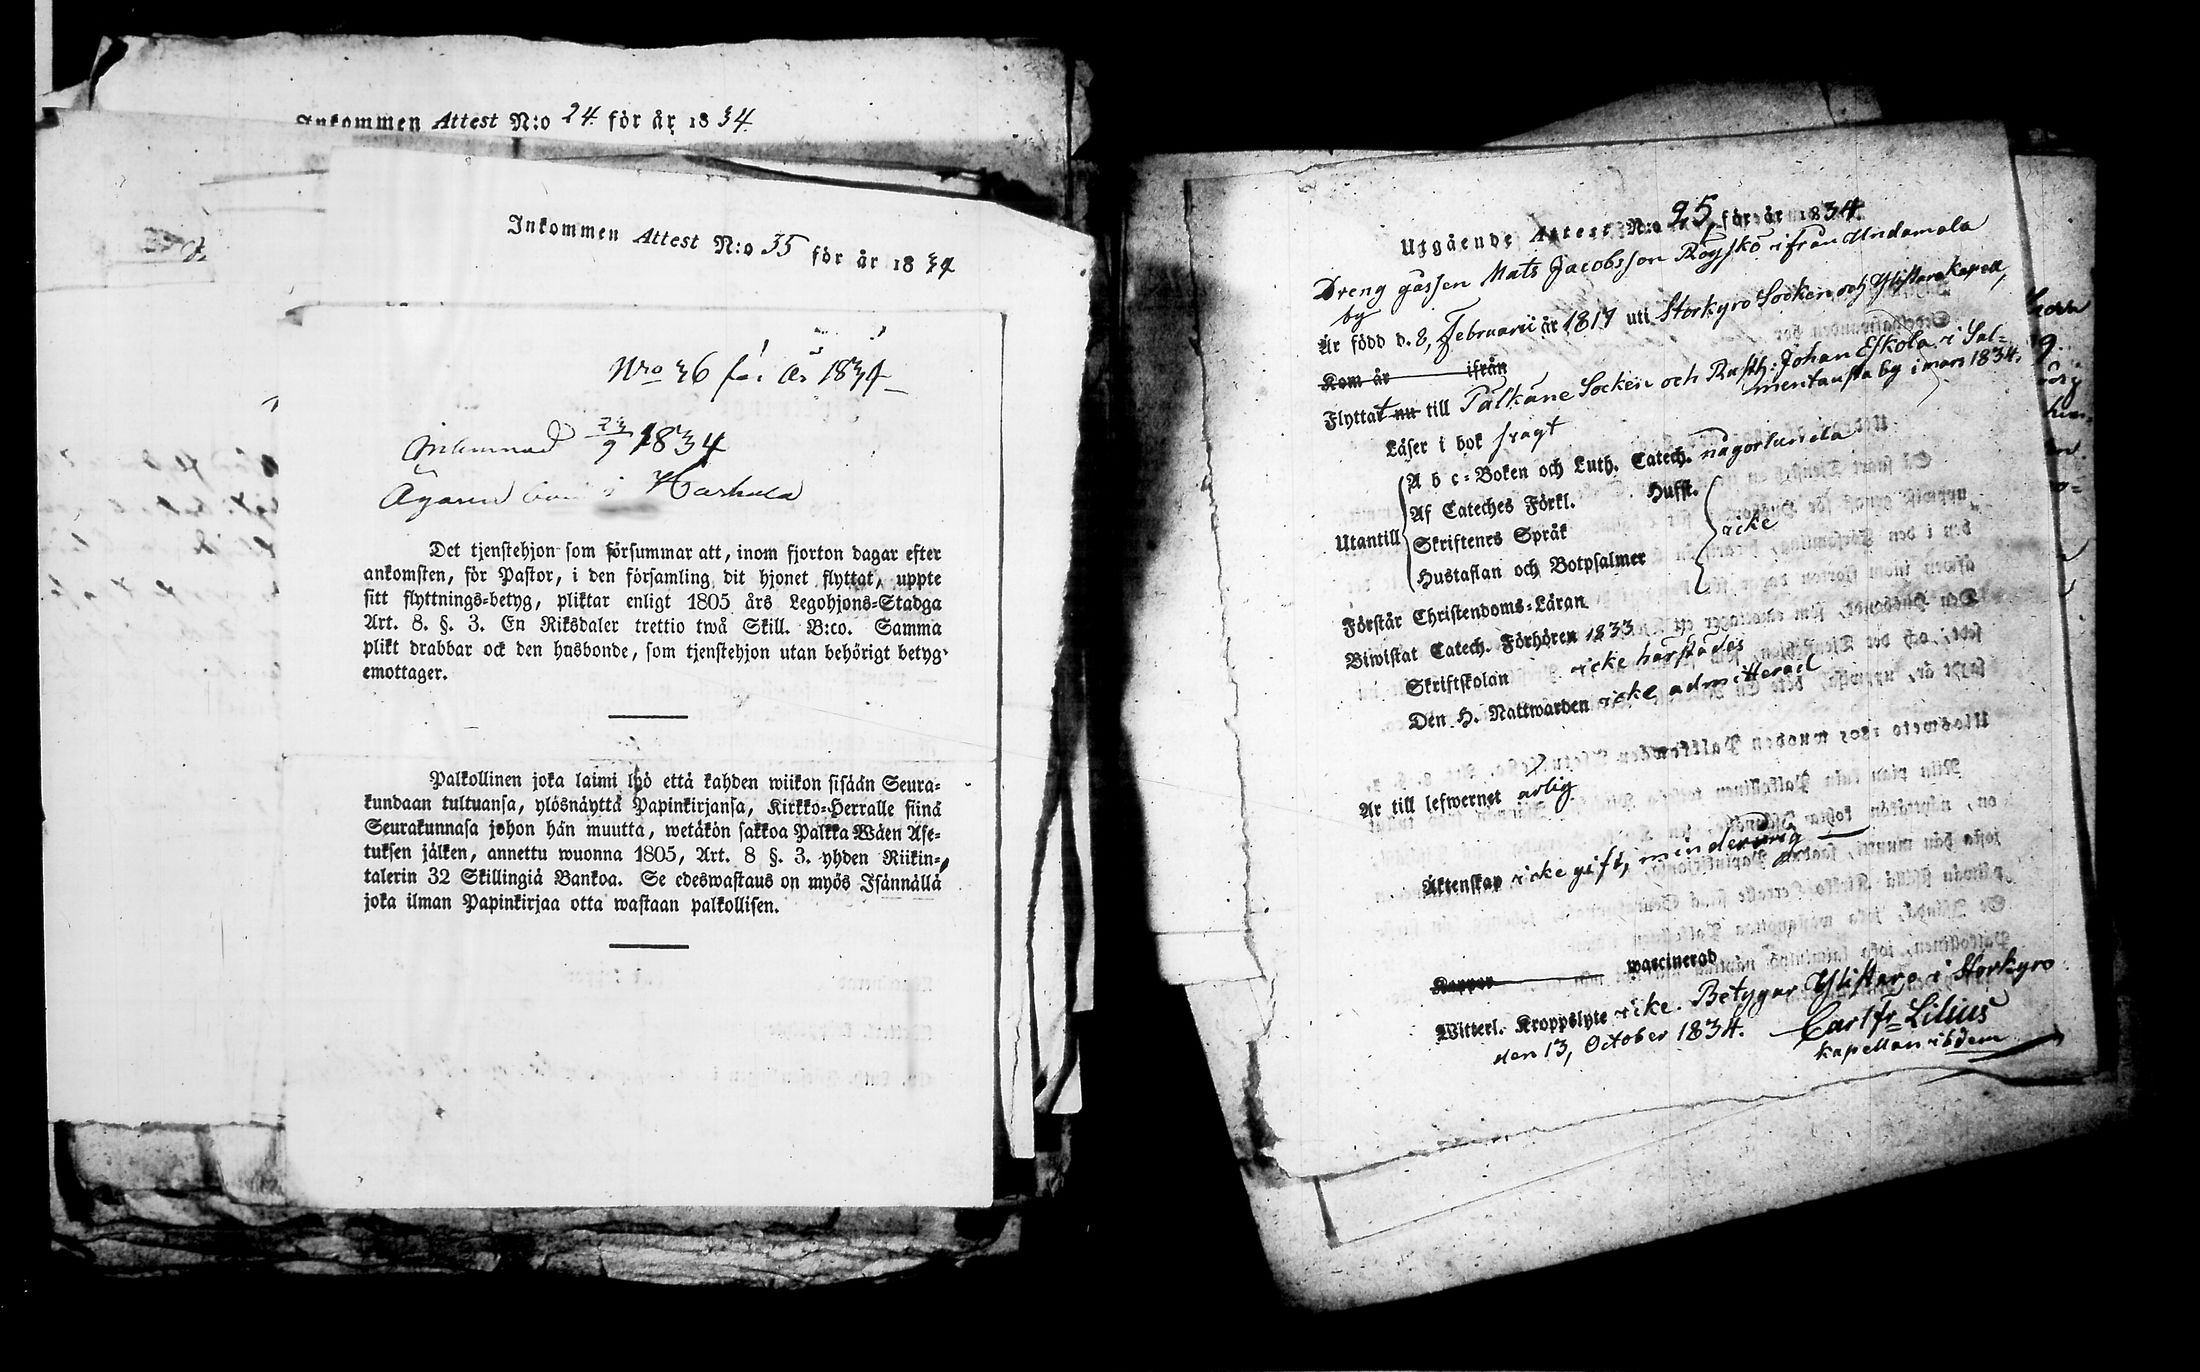 Inkommen Attest N:o 24 för år 1834.
Inkommen Attest N:o 35 för år 1834
Nro 36 för år 1834
Inlemnad 23/9 1834
Ägaren i Harhala
Det tjenstehjon som försummar att, inom fjorton dagar efter
ankomsten, för Pastor, i den församling dit hjonet flyttat, uppte
sitt flyttnings-betyg, pliktar enligt 1805 års Legohjons-Stadga
Art. 8. §. 3. En Riksdaler trettio twå Skill. B:co. Samma
plikt drabbar ock den husbonde, som tjenstehjon utan behörigt betyg
emottager.
Palkollinen joka laimi lyö että kahden wiikon sisään Seura-
kundaan tultuansa, ylösnäyttä Papinkirjansa, Kirkko-Herralle siinä
Seurakunnasa johon hän muutta, wetäkön sakkoa Palkka Wäen Ase-
tuksen jälken, annettu wuonna 1805, Art. 8 §. 3. yhden Riikin-
talerin 32 Skillingiä Bankoa. Se edeswastaus on myös Isännällä
joka ilman Papinkirjaa otta wastaan palkollisen.
Utgående Attest N:o 25, för år 1834.
Dreng gåssen Mats Jacobsson Röyskö ifrån Undamala
by
Är född d. 8, Februarii år 1817 uti Storkyro Socken och Ylistaro kapell,
Kom år ifrån
Flyttat nu till Pälkäne Socken och Rusth: Johan Eskola i Sal-
mentausta by i mars 1834.
Läser i bok svagt
Utantill
A b c-Boken och Luth. Catech. någorlunda
Af Cateches Förkl. Hufst.
Skriftenes Språk icke
Hustaflan och Botpsalmer
Förstår Christendoms-Läran
Biwistat Catech. Förhören 1833
Skriftskolan icke härstädes
Den H. Nattwarden icke admitterad
Är till lefwernet ärlig
Äktenskap icke gift, minderårig
Koppor waccinerad
Witterl. Kroppslyte icke. Betygar Ylistaro i Storkyro
den 13, October 1834. Carl Fr Lilius
Kapellan ibidem